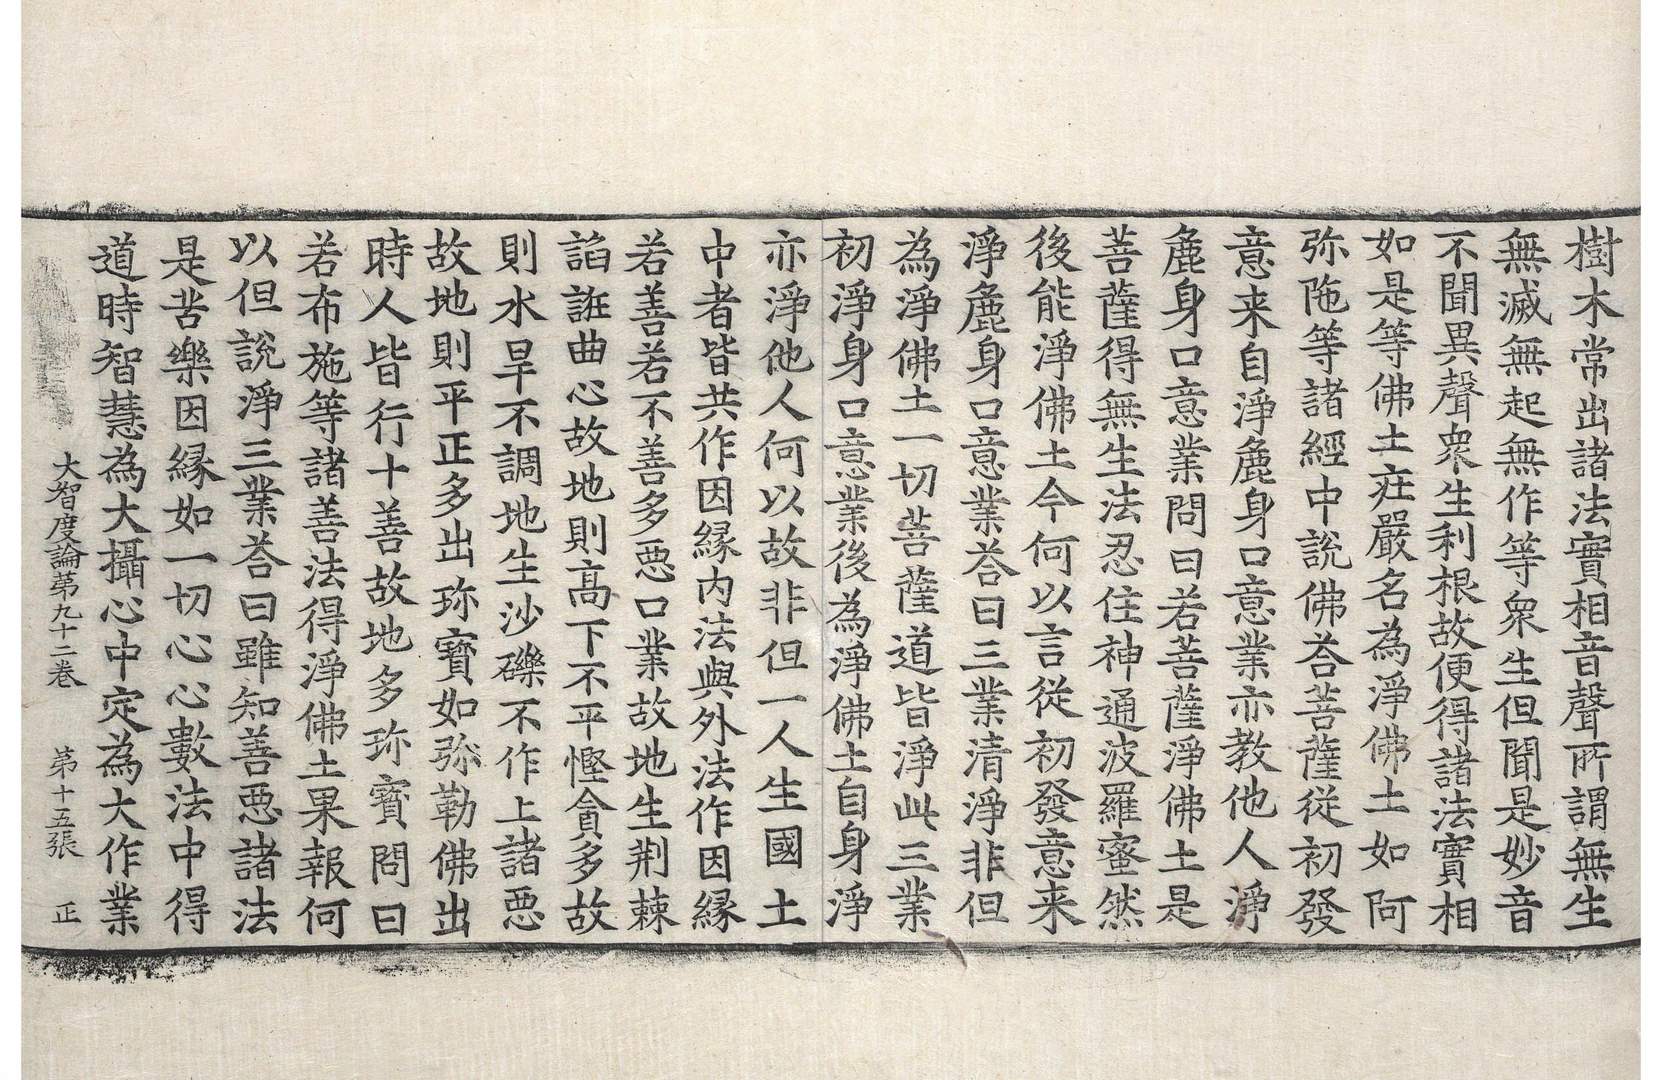 樹木常出諸法實相音聲所謂無生
無滅無起無作等衆生但聞是妙音
不聞異聲衆生利根故便得諸法實相
如是等佛土庄嚴名為淨佛土如阿
弥陁等諸經中說佛荅菩薩從初發
意来自淨麁身口意業亦教他人淨
麁身口意業問曰若菩薩淨佛土是
菩薩得無生法忍住神通波羅蜜然
後能淨佛土今何以言從初發意来
淨麁身口意業荅曰三業清淨非但
為淨佛土一切菩薩道皆淨此三業
初淨身口意業後為淨佛土自身淨
亦淨他人何以故非但一人生國土
中者皆共作因緣内法與外法作因緣
若善若不善多惡口業故地生荆棘
諂誑曲心故地則高下不平慳貪多故
則水旱不調地生沙礫不作上諸惡
故地則平正多出珎寶如弥勒佛出
時人皆行十善故地多珎寶問曰
若布施等諸善法得淨佛土果報何
以但說淨三業荅曰雖知善惡諸法
是苦樂因緣如一切心心數法中得
道時智慧為大攝心中定為大作業
大智度論第九十二卷 第十五張 正